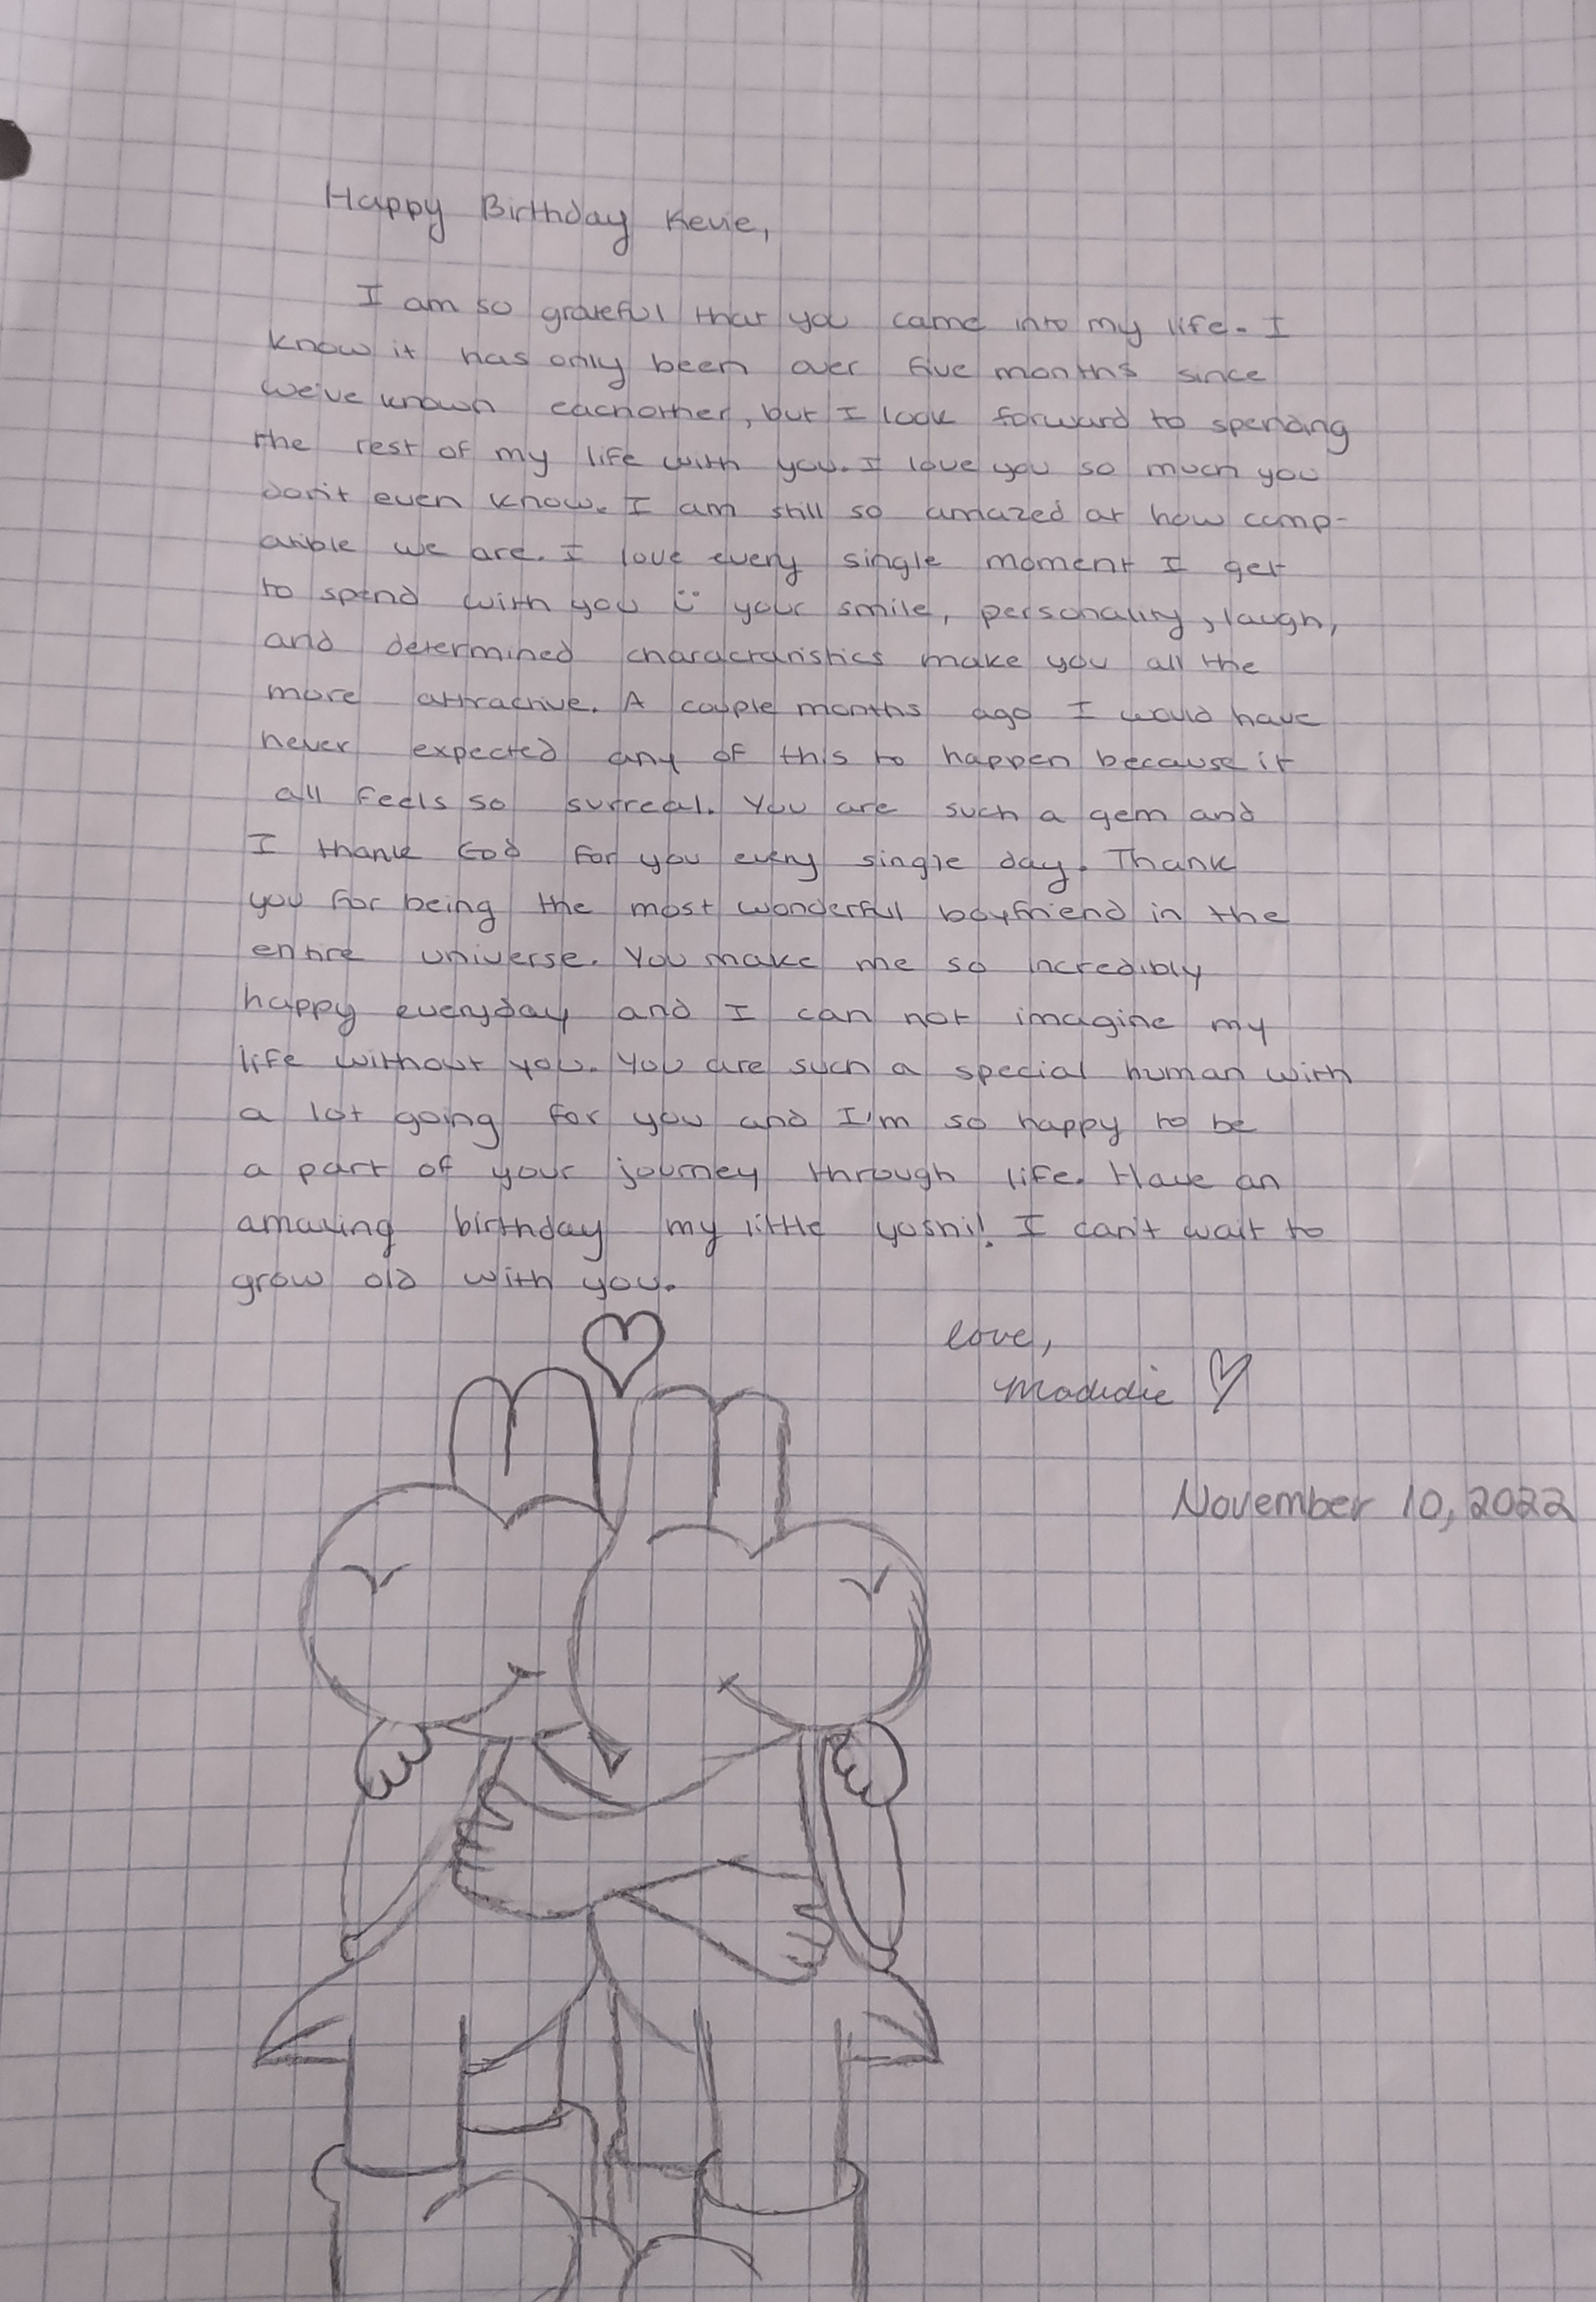 Happy Birthday Kevie,
I am so grateful that you came into my life. I
know it has only been over five months since
we've known eachother, but I look forward to spending
the rest of my life with you. I love you so much you
don't even know. I am still so amazed at how comp-
atible we are. I love every single moment I get
to spend with you ü your smile, personality, laugh,
and determined charactaristics make you all the
more attractive. A couple months ago I would have
never expected any of this to happen because it
all feels so surreal. You are such a gem and
I thank God for you every single day. Thank
you for being the most wonderful boyfriend in the
entire universe. You make me so incredibly
happy everyday and I can not imagine my
life without you. You are such a special human with
a lot going for you and I'm so happy to be
a part of your journey through life. Have an
amazing birthday my little yoshi! I can't wait to
grow old with you.
love,
November 10, 2022